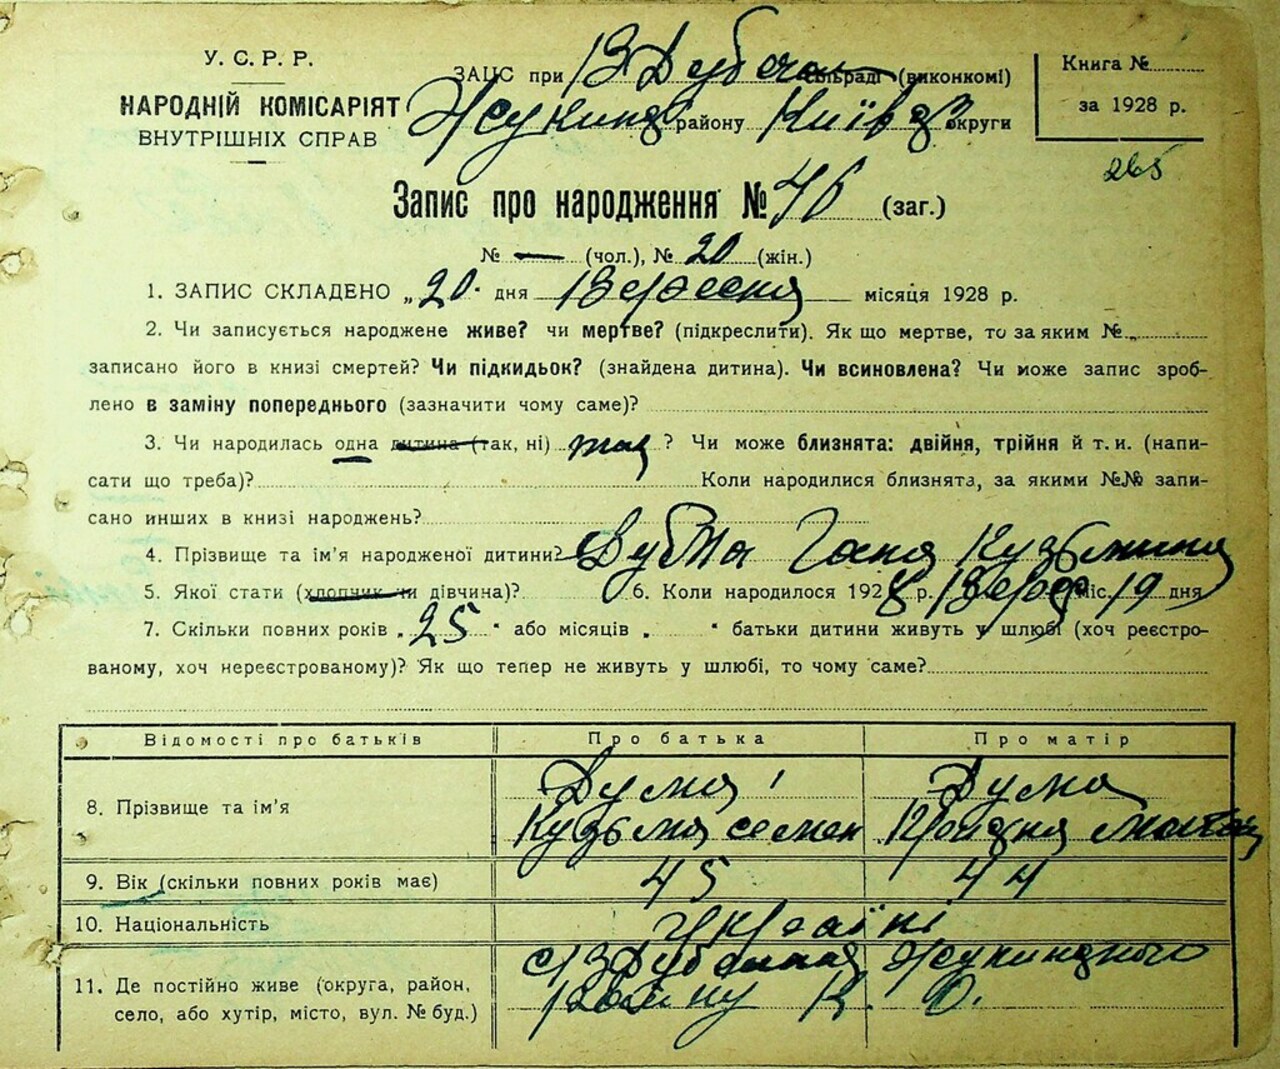 У. С. Р. Р.
НАРОДНІЙ КОМІСАРІЯТ
ВНУТРІШНІХ СПРАВ
ЗАЦС при В Дубечан сільраді (виконкомі)
Жукинд району Київс округи
Книга №
за 1928 р.
265
Запис про народження № 46 (заг.)
№ — (чол.), № 20 (жін.)
1. ЗАПИС СКЛАДЕНО „20" дня Вересня місяця 1928 р.
2. Чи записується народжене живе? чи мертве? (підкреслити). Як що мертве, то за яким №
записано його в книзі смертей? Чи підкидьок? (знайдена дитина). Чи всиновлена? Чи може запис зроб-
лено в заміну попереднього (зазначити чому саме)?
3. Чи народилась одна дитина (так, ні) так ? Чи може близнята: двійня, трійня й т. и. (напи-
сати що треба)? Коли народилися близнята, за якими №№ запи-
сано инших в книзі народжень?
4. Прізвище та ім'я народженої дитини? Ганя Кузьмина
5. Якої стати (хлопчик чи дівчина)? 6. Коли народилося 1928 р. Верес міс. 19 дня
7. Скільки повних років „25" або місяців „ " батьки дитини живуть у шлюбі (хоч реєстро-
ваному, хоч нереєстрованому)? Як що тепер не живуть у шлюбі, то чому саме?
Відомості про батьків Про батька Про матір
8. Прізвище та ім'я Дума Дума
Кузьма семен
9. Вік (скільки повних років має) 45 44
10. Національність Україні
11. Де постійно живе (округа, район,
село, або хутір, місто, вул. № буд.)
с В Дубечня Жукиндного
району К. О.